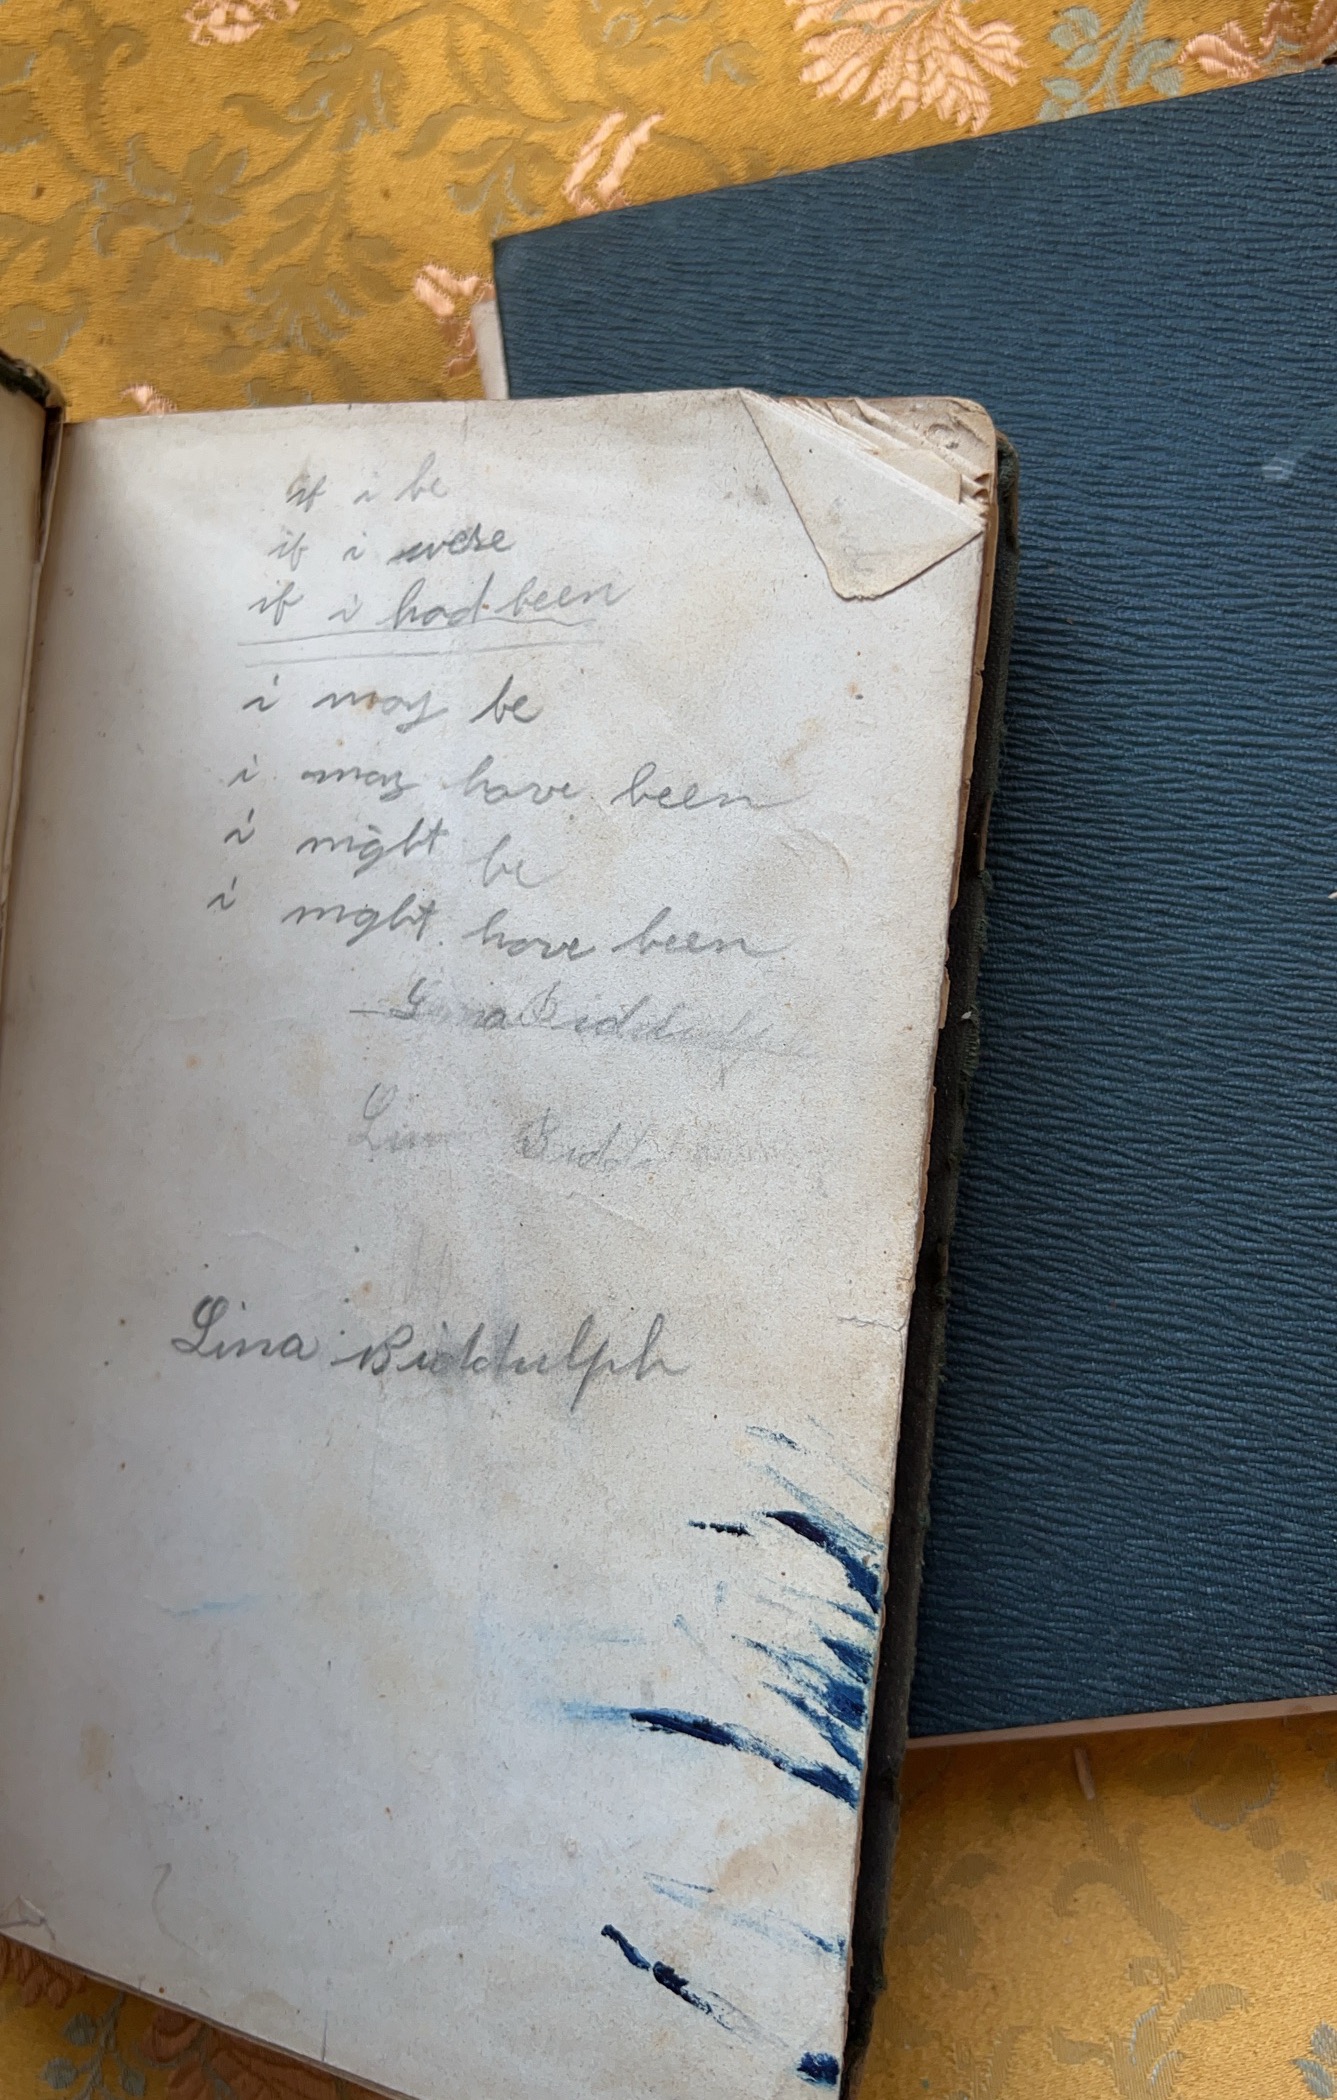 if i be
if i were
if i had been
i may be
i may have been
i might be
i might have been
Lina Biddulph